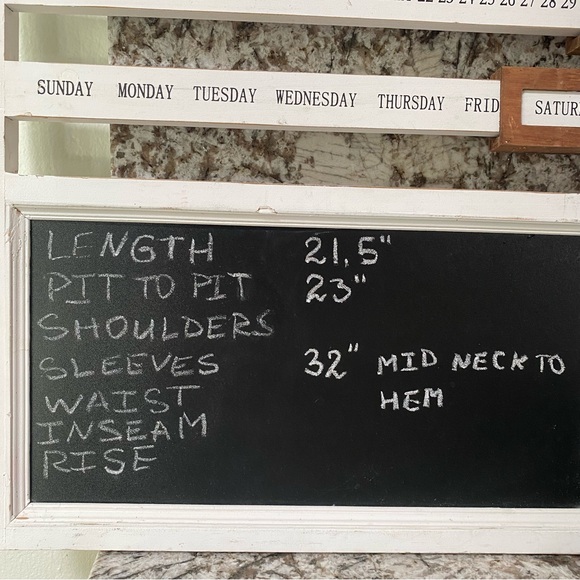 22 23 24 25 26 27 28 29
SUNDAY MONDAY TUESDAY WEDNESDAY THURSDAY FRID SATUR
LENGTH 21.5"
PIT TO PIT 23"
SHOULDERS
SLEEVES 32" MID NECK TO
HEM
WAIST
INSEAM
RISE